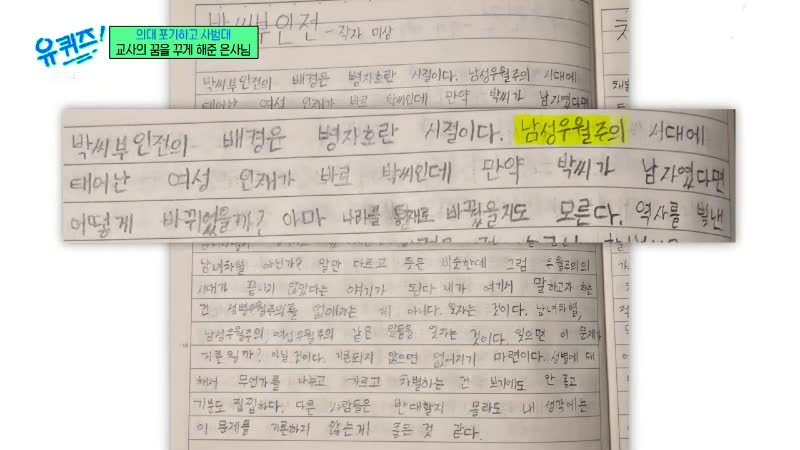 유퀴즈!
의대 포기하고 사범대
교사의 꿈을 꾸게 해준 은사님
박씨부인전 - 작자 미상
박씨부인전의 배경은 병자호란 시절이다. 남성우월주의 시대에
태어난 여성 인재가 바로 박씨인데 만약 박씨가 남자였다면
박씨부인전의 배경은 병자호란 시절이다. 남성우월주의 시대에
태어난 여성 인재가 바로 박씨인데 만약 박씨가 남자였다면
어떻게 바뀌었을까? 아마 나라를 통째로 바꿨을지도 모른다. 역사를 빛낸
남녀차별 아닌가? 말만 다르고 뜻은 비슷한데 그럼 우월주의의
시대가 끝나지 않았다는 얘기가 된다 내가 여기서 말하고자 하는
건 성별우월주의를 없애자는 게 아니다. 잊자는 것이다. 남녀차별,
남성우월주의, 여성우월주의 같은 말들을 잊자는 것이다. 잊으면 이 문제가
거론될까? 아닐 것이다. 거론되지 않으면 없어지기 마련이다. 성별에 대
해서 무언가를 나누고 가르고 차별하는 건 보기에도 안 좋고
기분도 찝찝하다. 다른 사람들은 반대할지 몰라도 내 생각에는
이 문제를 거론하지 않는게 좋은 것 같다.